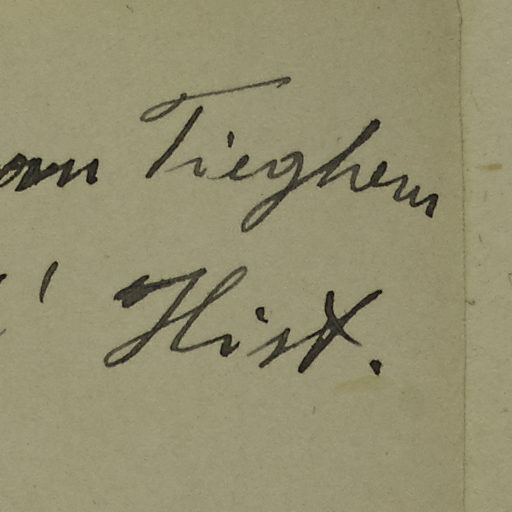 van Tieghem
' Hist.